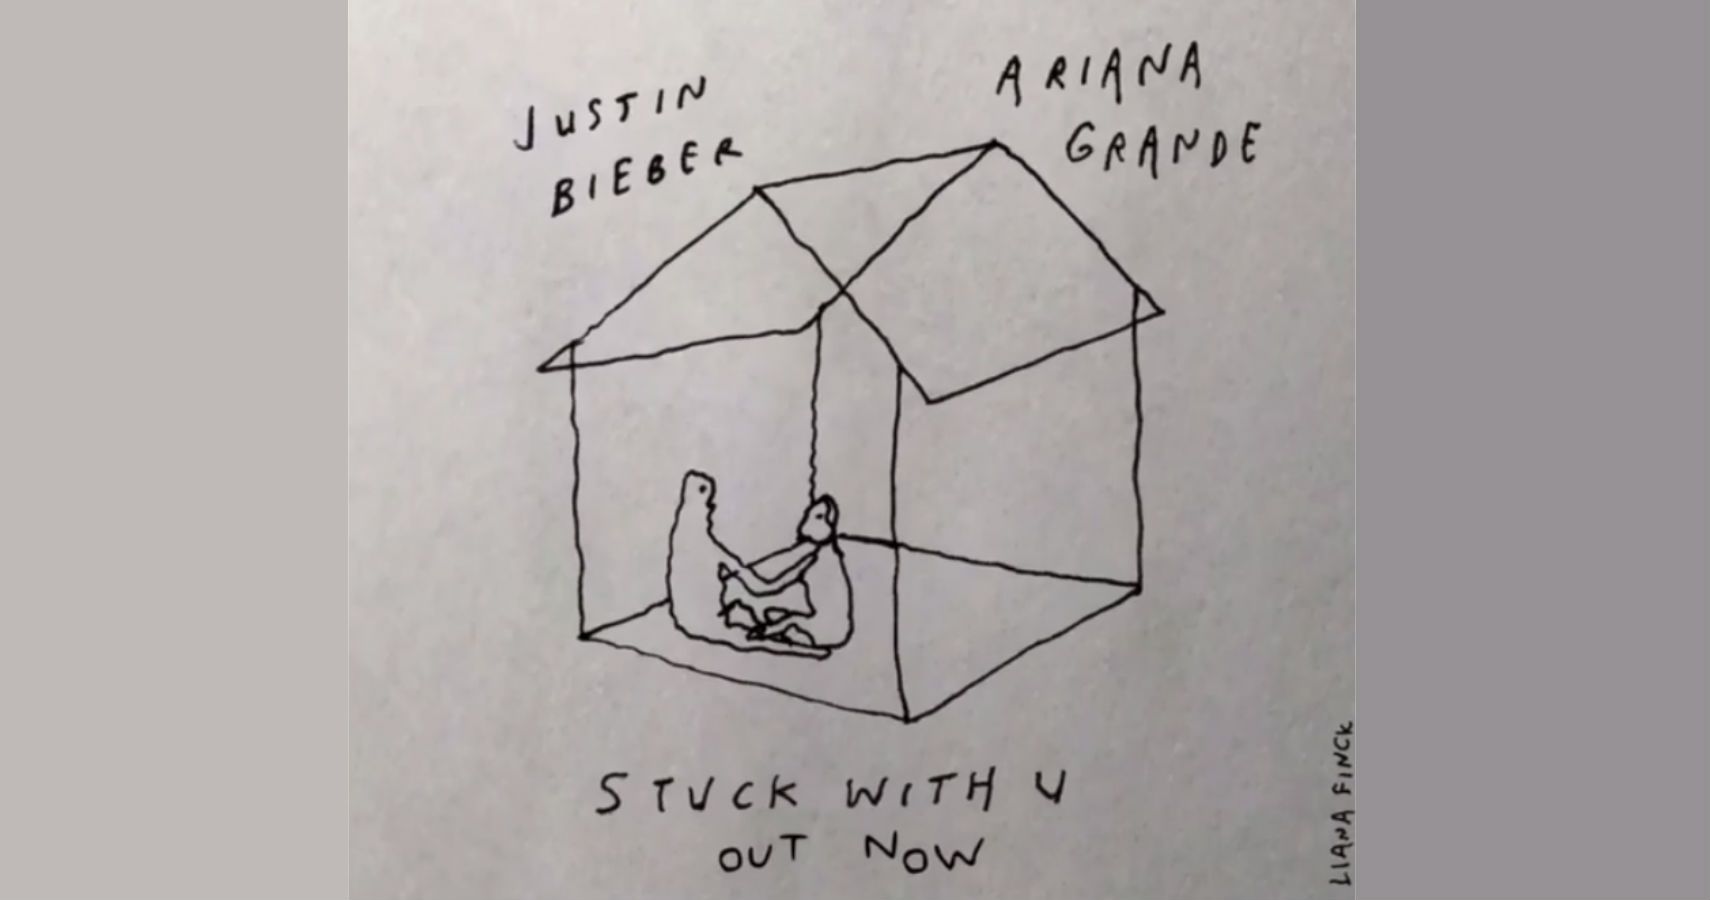 JUSTIN
BIEBER
ARIANA
GRANDE
STUCK WITH U
OUT NOW
LIANA FINCK